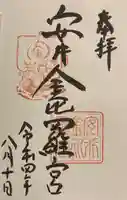 奉拝
安井金毘羅宮
令和四年
八月十日